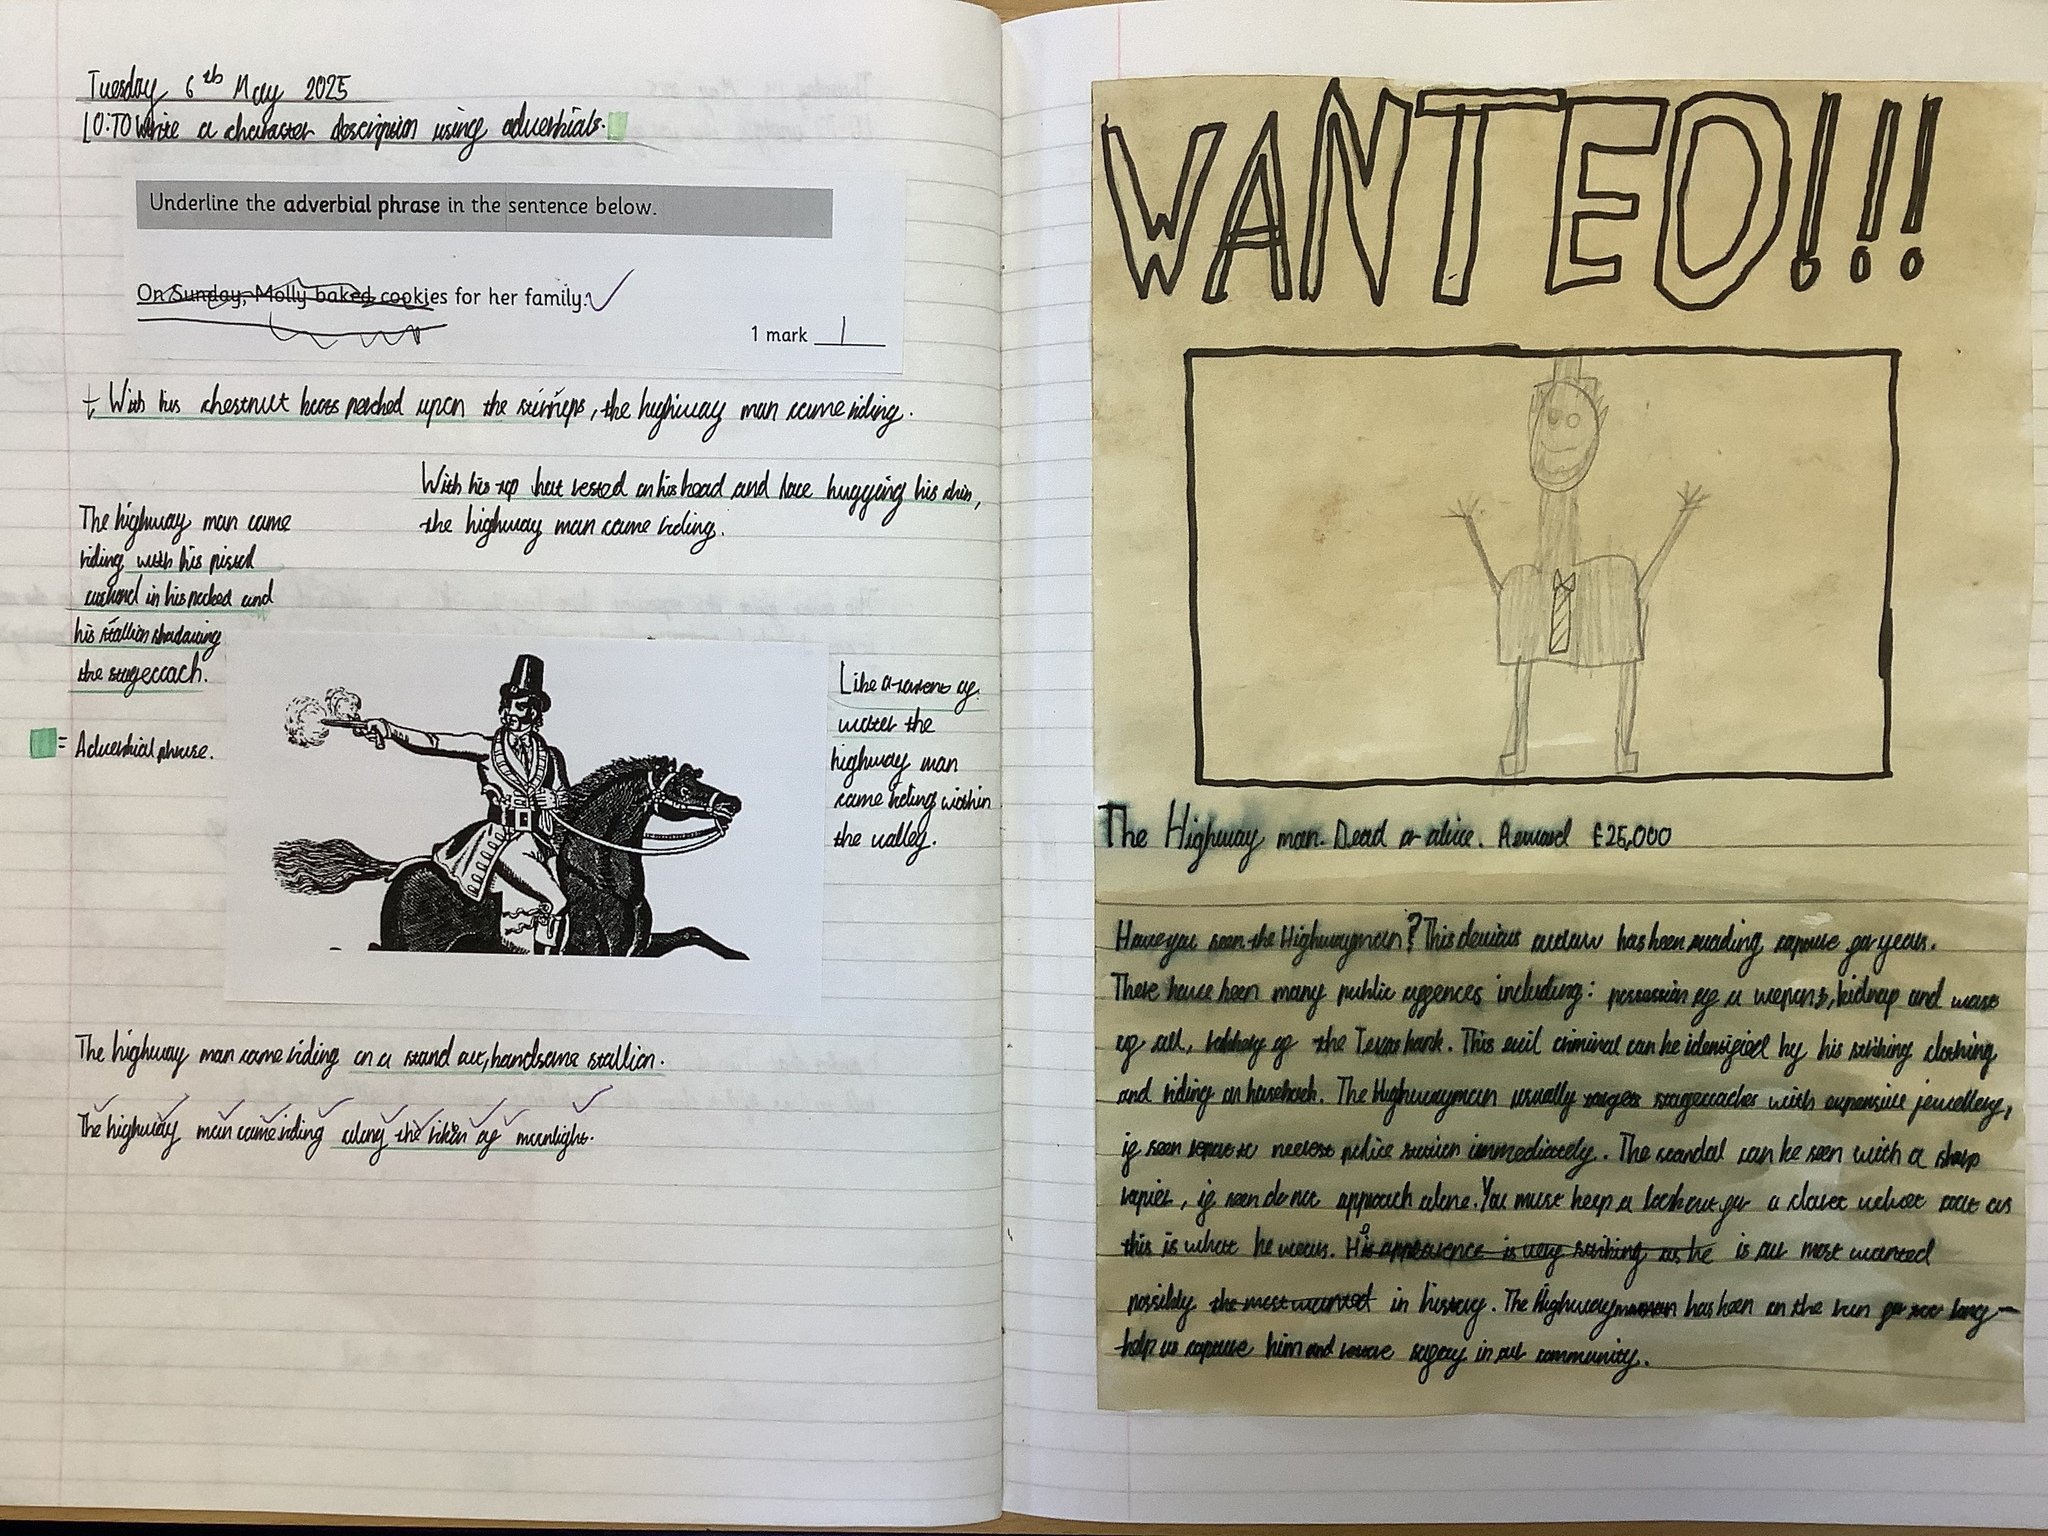 Tuesday 6th May 2025
LO:TO write a character description using adverbials.
Underline the adverbial phrase in the sentence below.
On Sunday, Molly baked cookies for her family.
1 mark 1
With his chestnut boots perched upon the stirrups, the highway man came riding.
With his top hat rested on his head and lace hugging his chin,
the highway man came riding.
The highway man came
riding with his pistol
in his pocket and
his stallion shadowing
the stagecoach.
= Adverbial phrase.
Like a of
water the
highway man
came riding within
the valley.
The highway man came riding on a stand out, handsome stallion.
The highway man came riding along the of moonlight.
WANTED!!!
The Highway man. Dead or alive. Reward £25,000
Have you seen the Highwayman? This devious outlaw has been evading capture for years.
There have been many public offences including: possession of a weapons, kidnap and worst
of all, robbery of the bank. This evil criminal can be identified by his striking clothing
and riding on horseback. The Highwayman usually targets stagecoaches with expensive jewellery,
if seen report to neerest police station immediately. The scandal can be seen with a sharp
rapier, if seen do not approach alone. You must keep a lookout for a claret velvet coat as
this is what he wears. His appearence is very striking as he is our most wanted
possibly the most wanted in history. The Highwayman has been on the run for too long -
help us capture him and restore safety in our community.